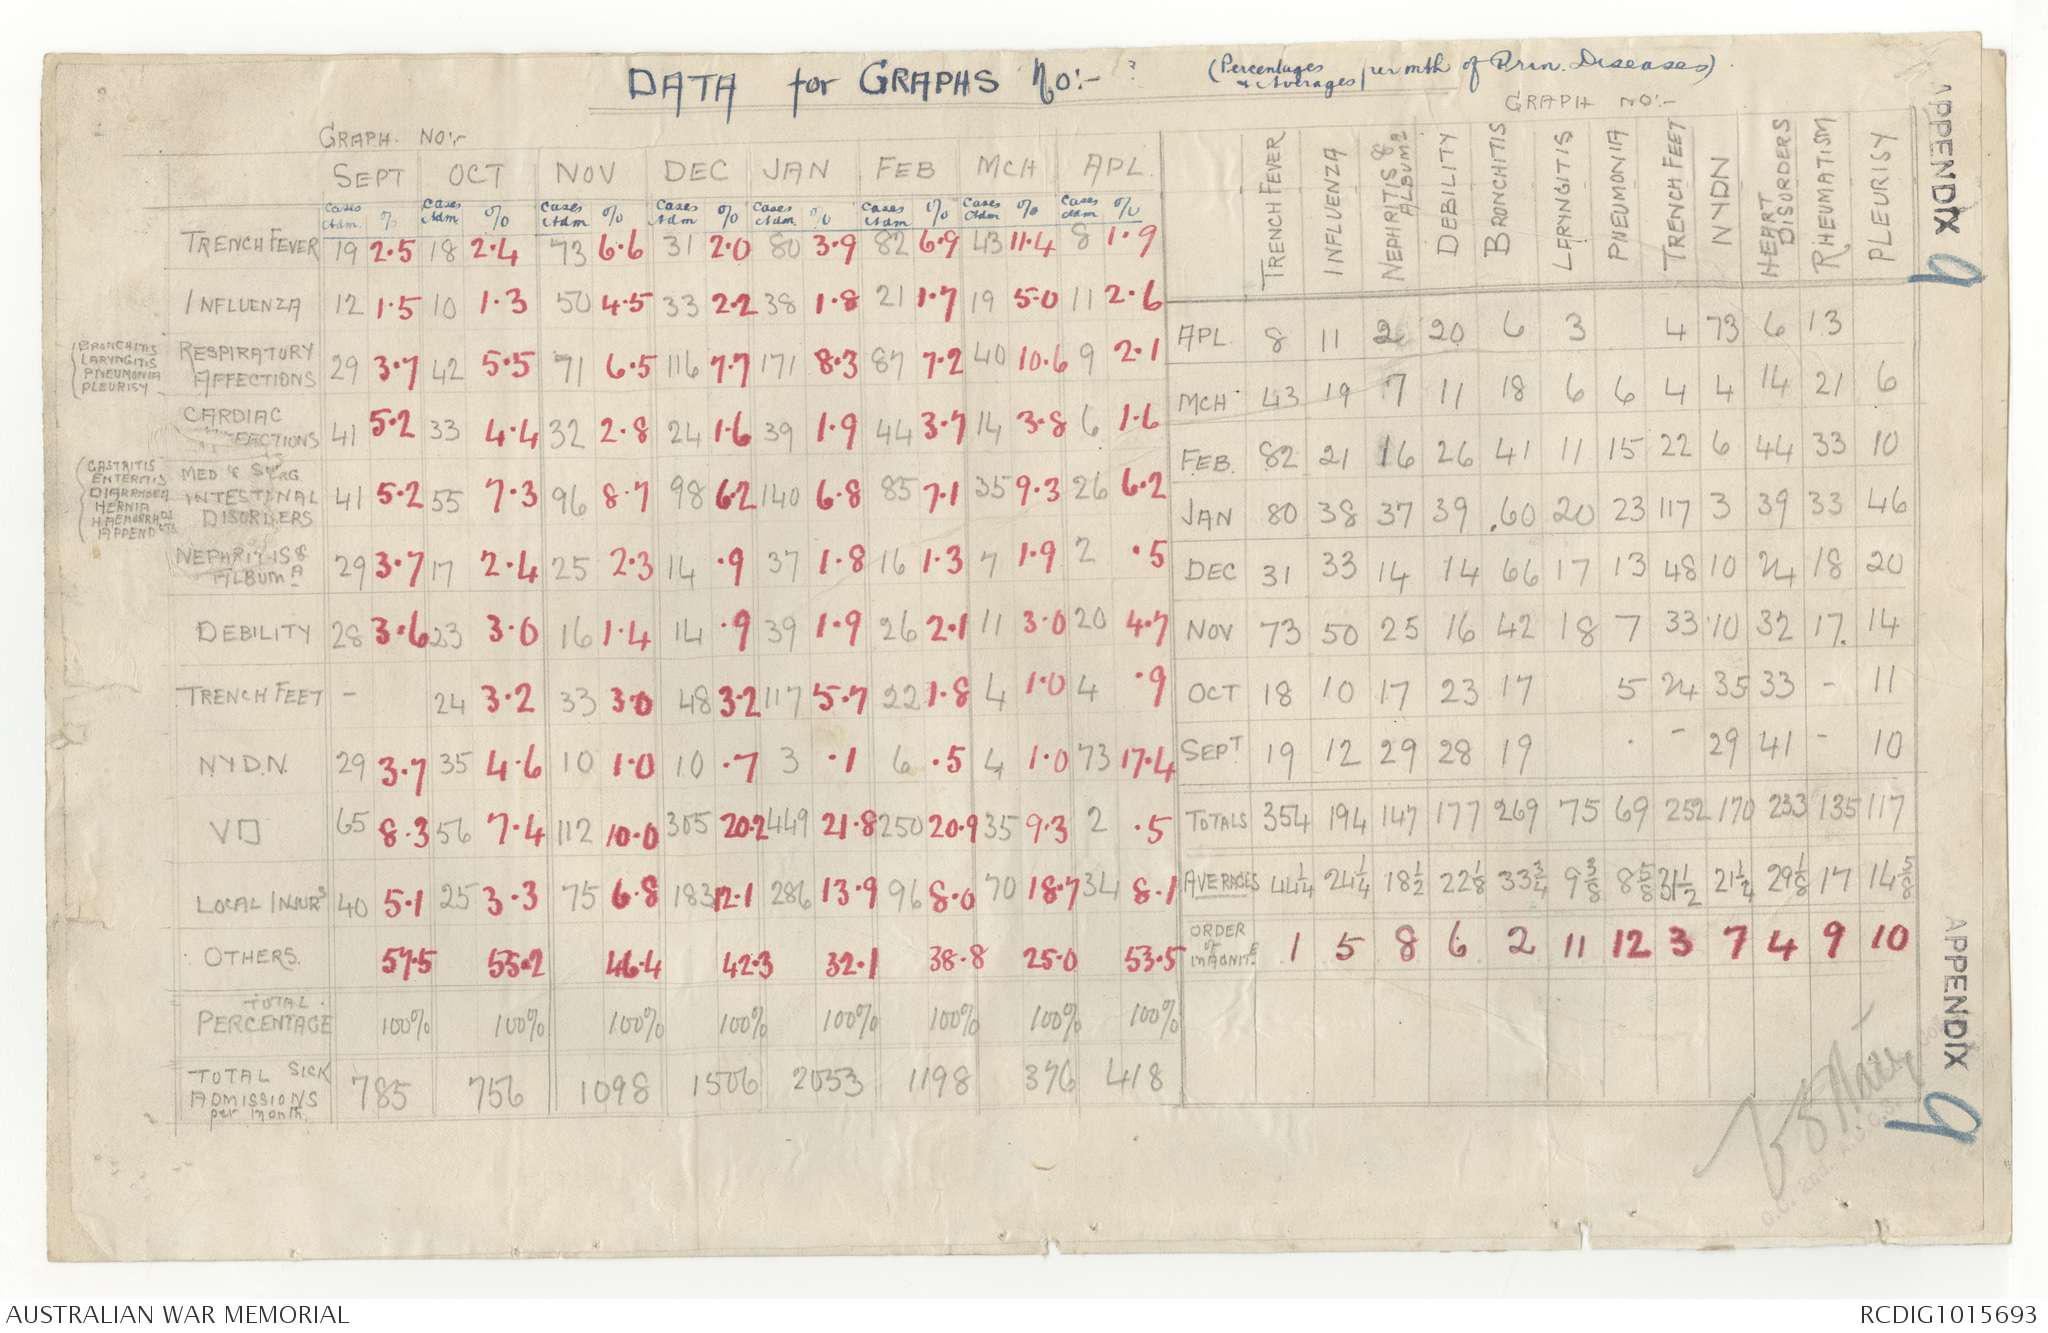 DATA for GRAPHS No:- ? (Percentages & Averages per mth of Prin. Diseases).
GRAPH. NO:-
SEPT OCT NOV DEC JAN FEB MCH APL.
Cases Adm. % Cases Adm % Cases Adm % Cases Adm % Cases Adm. % Cases Adm % Cases Adm % Cases Adm %
TRENCH FEVER 19 2.5 18 2.4 73 6.6 31 2.0 80 3.9 82 6.9 43 11.4 8 1.9
INFLUENZA 12 1.5 10 1.3 50 4.5 33 2.2 38 1.8 21 1.7 19 5.0 11 2.6
BRONCHITIS
LARYNGITIS
PNEUMONIA
PLEURISY
RESPIRATORY AFFECTIONS 29 3.7 42 5.5 71 6.5 116 7.7 171 8.3 87 7.2 40 10.6 9 2.1
CARDIAC AFFECTIONS 41 5.2 33 4.4 32 2.8 24 1.6 39 1.9 44 3.7 14 3.8 6 1.6
GASTRITIS
ENTERITIS
DIARRHOEA
HERNIA
HAEMORRHDS
APPENDCTS
MED & SURG INTESTINAL DISORDERS 41 5.2 55 7.3 96 8.7 98 6.2 140 6.8 85 7.1 35 9.3 26 6.2
NEPHRITIS & ALBUMA 29 3.7 17 2.4 25 2.3 14 .9 37 1.8 16 1.3 7 1.9 2 .5
DEBILITY 28 3.6 23 3.0 16 1.4 14 .9 39 1.9 26 2.1 11 3.0 20 4.7
TRENCH FEET - 24 3.2 33 3.0 48 3.2 117 5.7 22 1.8 4 1.0 4 .9
N.Y.D.N. 29 3.7 35 4.6 10 1.0 10 .7 3 .1 6 .5 4 1.0 73 17.4
VD 65 8.3 56 7.4 112 10.0 305 20.2 449 21.8 250 20.9 35 9.3 2 .5
LOCAL INJURS 40 5.1 25 3.3 75 6.8 183 12.1 286 13.9 96 8.0 70 18.7 34 8.1
OTHERS. 57.5 55.2 46.4 42.3 32.1 38.8 25.0 53.5
TOTAL PERCENTAGE 100% 100% 100% 100% 100% 100% 100% 100%
TOTAL SICK ADMISSIONS per month. 785 756 1098 1506 2053 1198 376 418
GRAPH NO:-
TRENCH FEVER INFLUENZA NEPHRITIS & ALBUMA DEBILITY BRONCHITIS LARYNGITIS PNEUMONIA TRENCH FEET NYDN HEART DISORDERS RHEUMATISM PLEURISY
APL 8 11 2 20 6 3 4 73 6 13
MCH 43 19 7 11 18 6 6 4 4 14 21 6
FEB. 82 21 16 26 41 11 15 22 6 44 33 10
JAN 80 38 37 39 .60 20 23 117 3 39 33 46
DEC 31 33 14 14 66 17 13 48 10 24 18 20
NOV 73 50 25 16 42 18 7 33 10 32 17. 14
OCT 18 10 17 23 17 5 24 35 33 - 11
SEPT. 19 12 29 28 19 - 29 41 - 10
TOTALS 354 194 147 177 269 75 69 252 170 233 135 117
AVERAGES 44¼ 24¼ 18½ 22⅛ 33¾ 9⅜ 8⅝ 31½ 21¼ 29⅛ 17 14⅝
ORDER of MAGNITE 1 5 8 6 2 11 12 3 7 4 9 10
APPENDIX 9
APPENDIX 9
AUSTRALIAN WAR MEMORIAL
RCDIG1015693